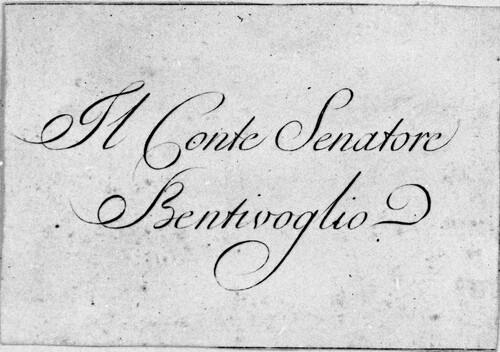 Il Conte Senatore
Bentivoglio